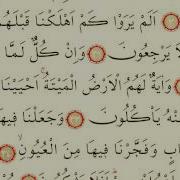 اَلَمْ يَرَوْا كَمْ اَهْلَكْنَا قَبْلَهُمْ
لَا يَرْجِعُونَ وَاِنْ كُلٌّ لَمَّا
وَاٰيَةٌ لَهُمُ الْاَرْضُ الْمَيْتَةُ اَحْيَيْنَا
نْهُ يَأْكُلُونَ وَجَعَلْنَا
ابٍ وَفَجَّرْنَا فِيهَا مِنَ الْعُيُونِ